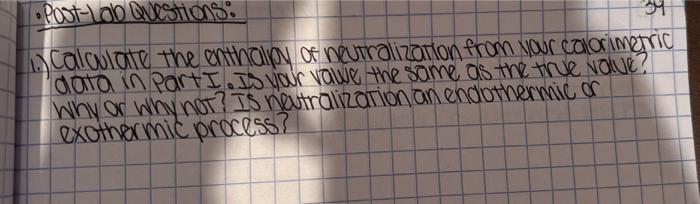 • Post-Lab Questions:
39
1.) Calculate the enthalpy of neutralization from your calorimetric
data in Part I. Is your value the same as the true value?
Why or why not? Is neutralization an endothermic or
exothermic process?